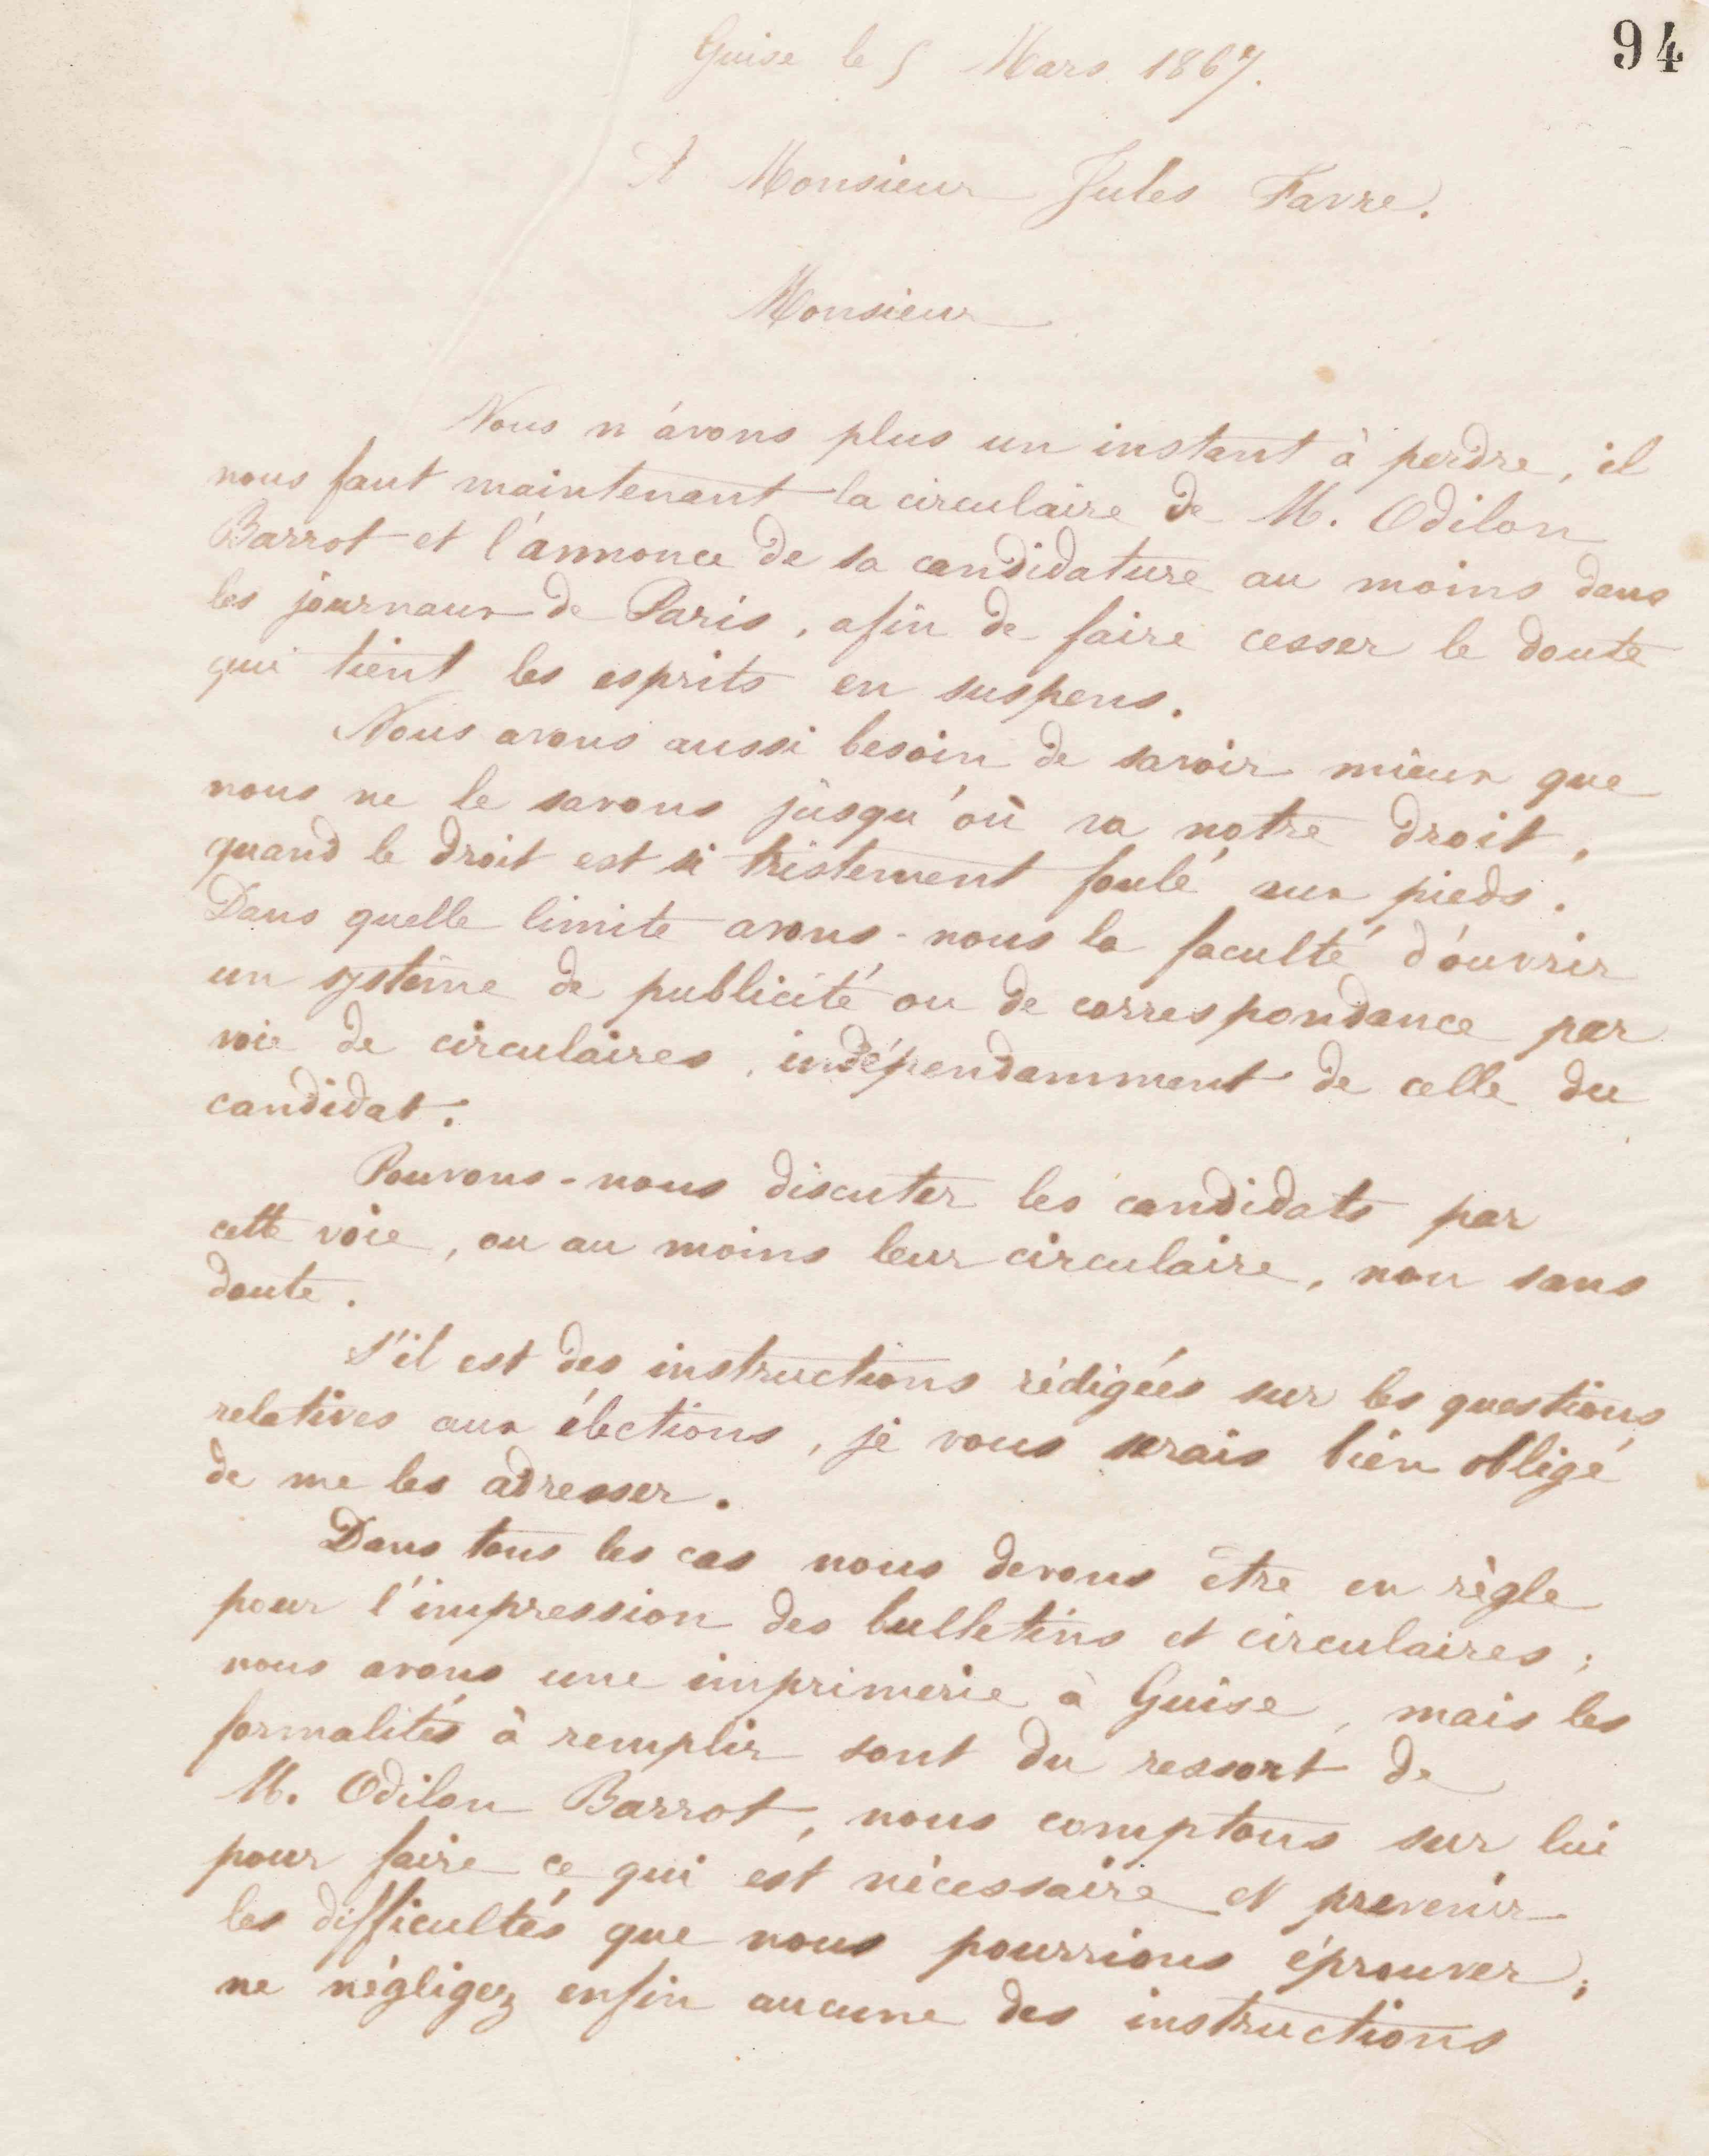 94
Guise le 5 Mars 1867.
A Monsieur Jules Favre.
Monsieur
Nous n'avons plus un instant à perdre, il
nous faut maintenant la circulaire de M. Odilon
Barrot et l'annonce de sa candidature au moins dans
les journaux de Paris, afin de faire cesser le doute
qui tient les esprits en suspens.
Nous avons aussi besoin de savoir mieux que
nous ne le savons jusqu'où va notre droit,
quand le droit est si tristement foulé aux pieds.
Dans quelle limite avons-nous la faculté d'ouvrir
un système de publicité ou de correspondance par
voie de circulaires, indépendamment de celle du
candidat.
Pouvons-nous discuter les candidats par
cette voie, ou au moins leur circulaire, non sans
doute.
S'il est des instructions rédigées sur les questions
relatives aux élections, je vous serais bien obligé
de me les adresser.
Dans tous les cas nous devons être en règle
pour l'impression des bulletins et circulaires;
nous avons une imprimerie à Guise, mais les
formalités à remplir sont du ressort de
M. Odilon Barrot, nous comptons sur lui
pour faire ce qui est nécessaire et prevenir
les difficultés que nous pourrions éprouver;
ne négligez enfin aucune des instructions